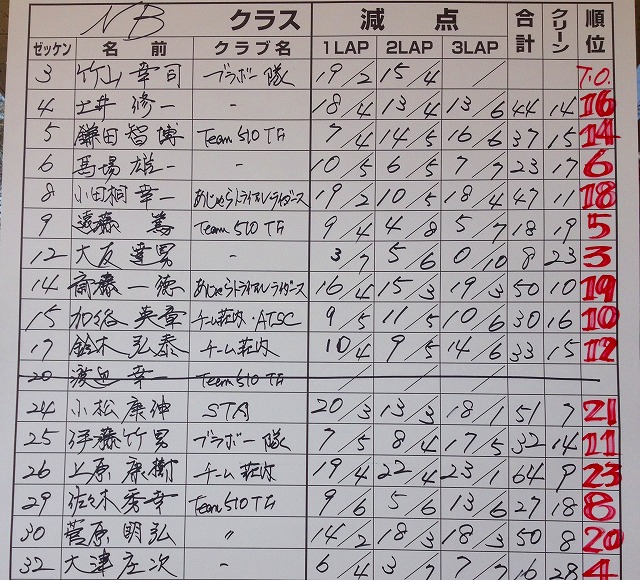 NB クラス 減点 合計 クリーン 順位
ゼッケン 名前 クラブ名 1LAP 2LAP 3LAP
3 竹山幸司 ブラボー隊 19/2 15/4 / T.O.
4 土井修一 - 18/4 13/4 13/6 44 14 16
5 鎌田智博 Team510TA 7/4 14/5 16/6 37 15 14
6 馬場雄一 - 10/5 6/5 7/7 23 17 6
8 小田桐幸一 あじゃらトライアルライダース 19/2 10/5 18/4 47 11 18
9 遠藤篤 Team510TA 9/4 4/8 5/7 18 19 5
12 大友達男 - 3/7 5/6 0/10 8 23 3
14 斎藤一徳 あじゃらトライアルライダース 16/4 15/3 19/3 50 10 19
15 加谷英章 チーム荘内・ATSC 9/5 11/5 10/6 30 16 10
17 鈴木弘泰 チーム荘内 10/4 9/5 14/6 33 15 12
20 渡辺幸一 Team510TA / / /
24 小松康伸 STA 20/3 13/3 18/1 51 7 21
25 伊藤竹男 ブラボー隊 7/5 8/4 17/5 32 14 11
26 上原康樹 チーム荘内 19/4 22/4 23/1 64 9 23
29 佐々木秀幸 Team510TA 9/6 5/6 13/6 27 18 8
30 菅原明弘 〃 14/2 18/3 18/3 50 8 20
32 大津庄次 - 6/4 3/7 7/7 16 28 4